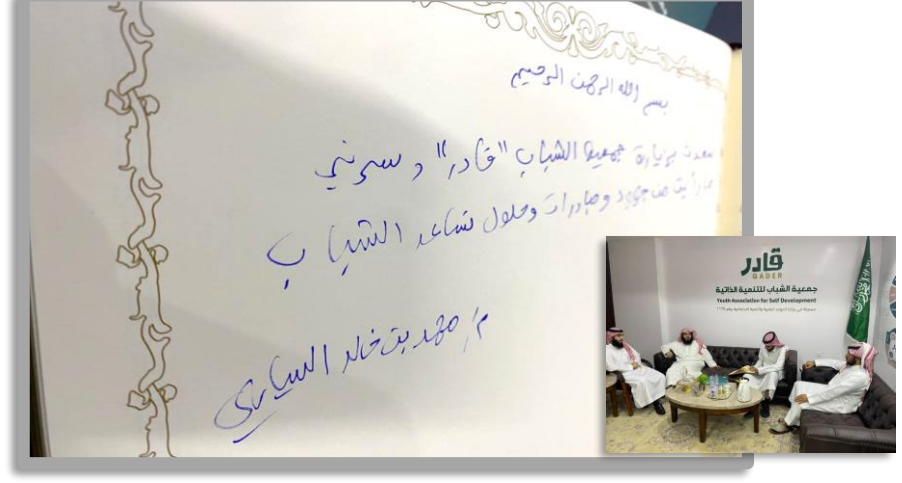 بسم الله الرحمن الرحيم
سعدت بزيارة جمعية الشباب "قادر" وسرني
ما رأيت من جهود ومبادرات وحلول تساعد الشباب
م/ فهد بن خالد
قادر
QADER
جمعية الشباب للتنمية الذاتية
Youth Association for Self Development